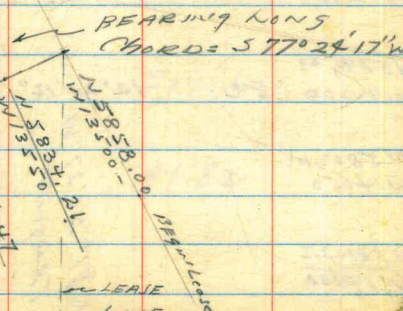 BEARING LONG
CHORD = S 77° 24' 17" W
N 5858.00
W 13500.-
N 5834.21
W 13550
47
BEGIN LEASE
LEASE